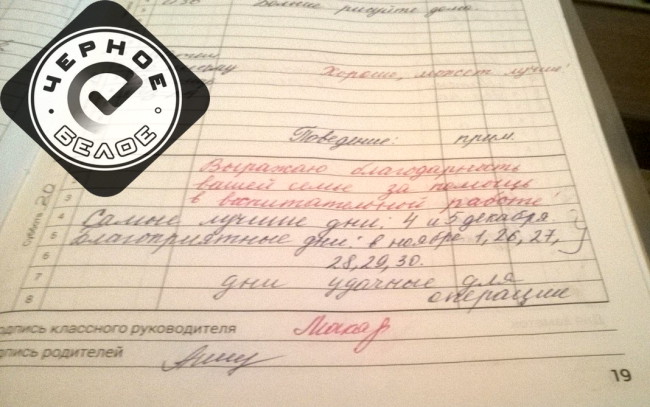 Больше рисуйте дома.
ЧЕРНОЕ
БЕЛОЕ
Хорошо, может лучше!
Поведение: прим.
суббота 20
Выражаю благодарность
вашей семье за помощь
3
в воспитательной работе!
4 Самые лучшие дни: 4 и 5 декабря
5 благоприятные дни: в ноябре 1, 26, 27,
6 28, 29, 30.
7 дни удачные для
8 операции
одпись классного руководителя Макар
дпись родителей
19